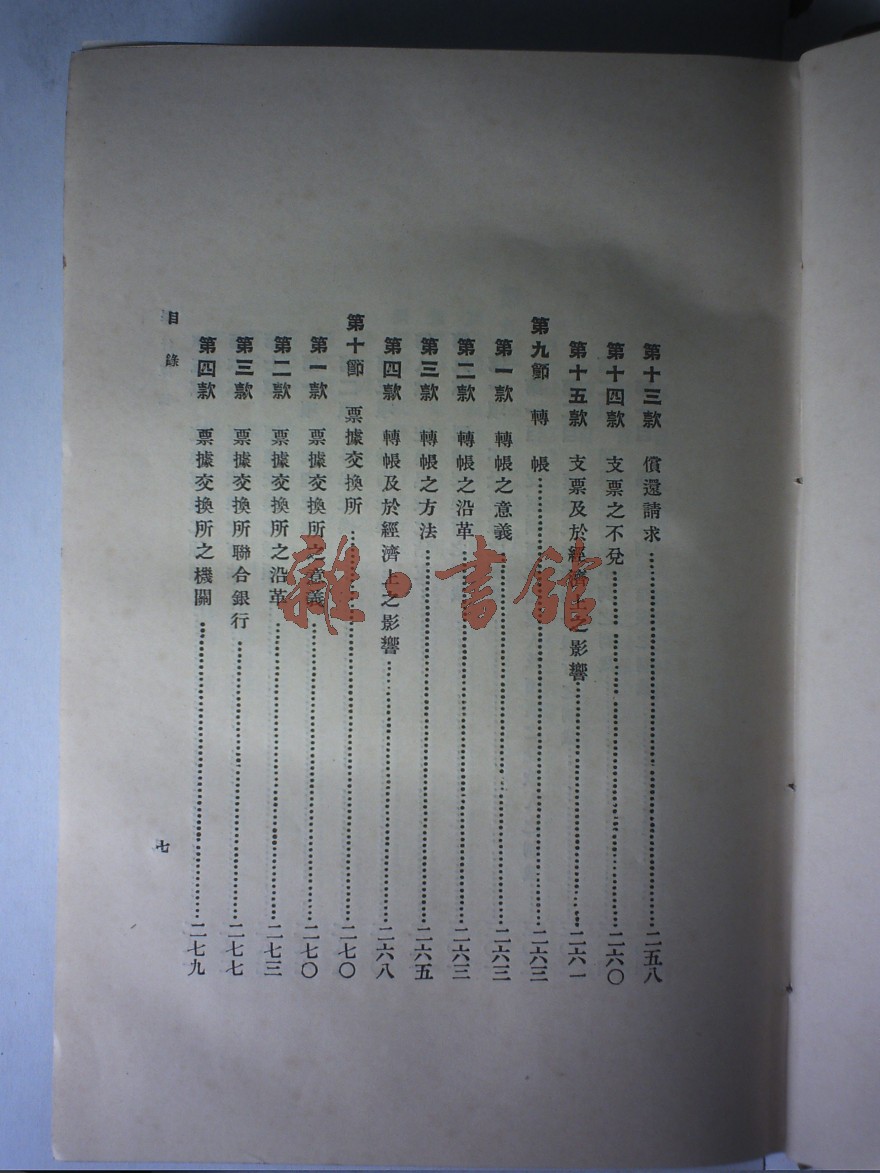 第十三款　償還請求……二五八
第十四款　支票之不兌……二六〇
第十五款　支票及於經濟上之影響……二六一
第九節　轉　帳……二六三
第一款　轉帳之意義……二六三
第二款　轉帳之沿革……二六三
第三款　轉帳之方法……二六五
第四款　轉帳及於經濟上之影響……二六八
第十節　票據交換所……二七〇
第一款　票據交換所之意義……二七〇
第二款　票據交換所之沿革……二七三
第三款　票據交換所聯合銀行……二七七
第四款　票據交換所之機關……二七九
目錄
七
雜·書館